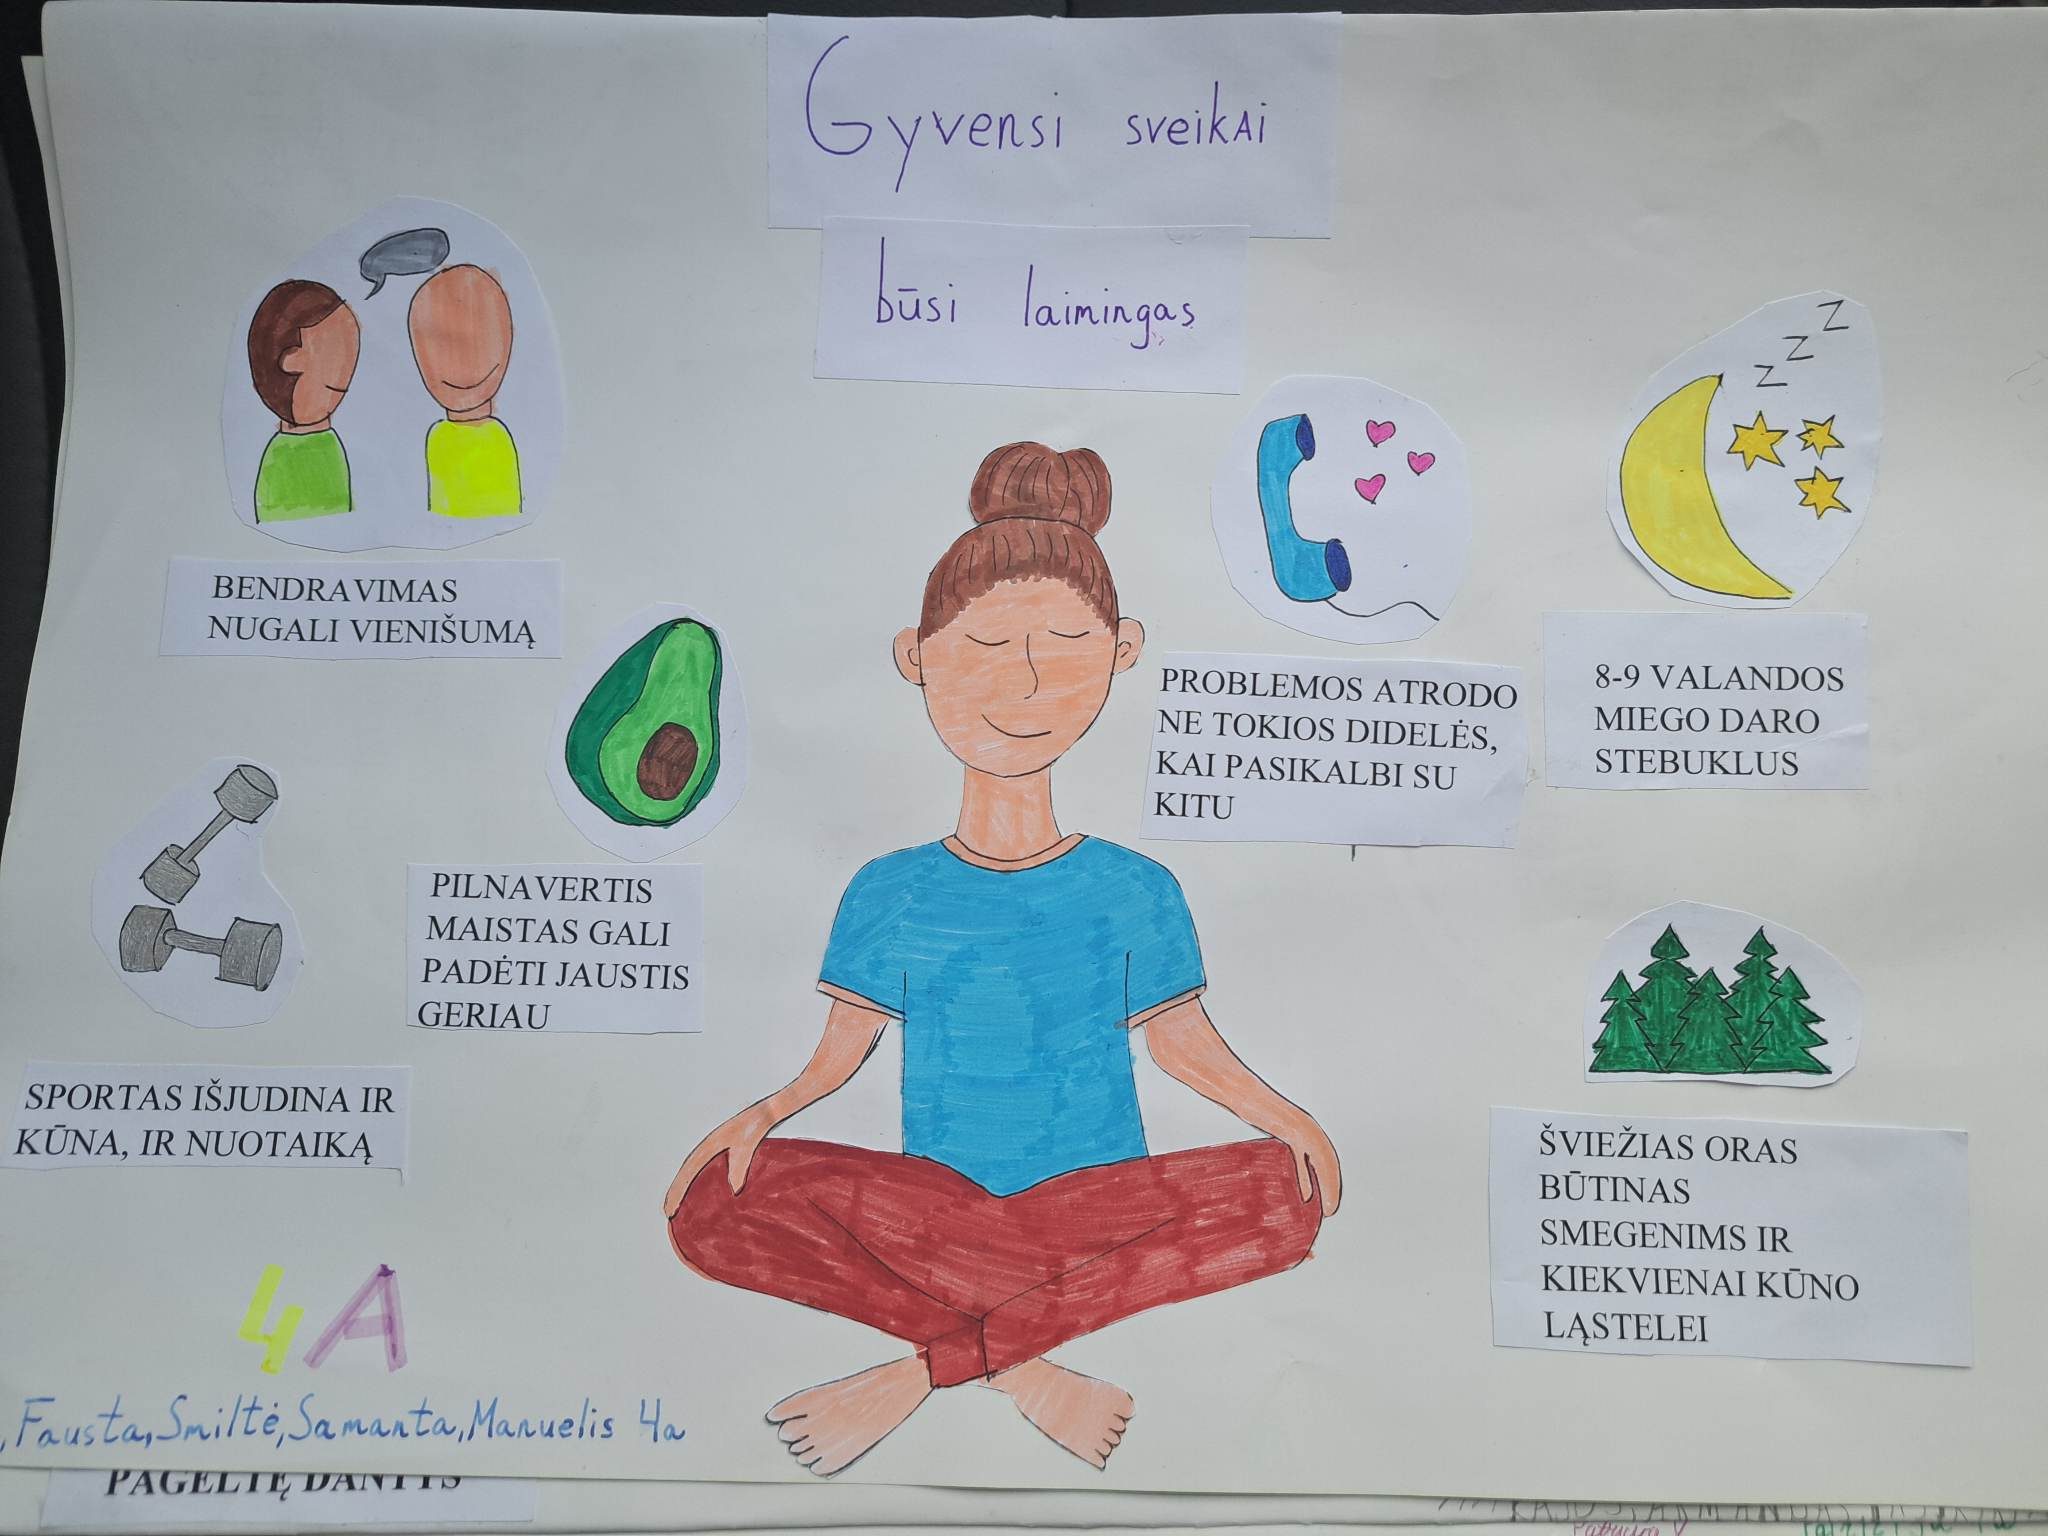 Gyvensi sveikai
būsi laimingas
BENDRAVIMAS
NUGALI VIENIŠUMĄ
Z
Z
Z
PROBLEMOS ATRODO
NE TOKIOS DIDELĖS,
KAI PASIKALBI SU
KITU
8-9 VALANDOS
MIEGO DARO
STEBUKLUS
PILNAVERTIS
MAISTAS GALI
PADĖTI JAUSTIS
GERIAU
SPORTAS IŠJUDINA IR
KŪNA, IR NUOTAIKĄ
ŠVIEŽIAS ORAS
BŪTINAS
SMEGENIMS IR
KIEKVIENAI KŪNO
LĄSTELEI
4A
, Fausta, Smiltė, Samanta, Manuelis 4a
PAGELTĘ DANTYS